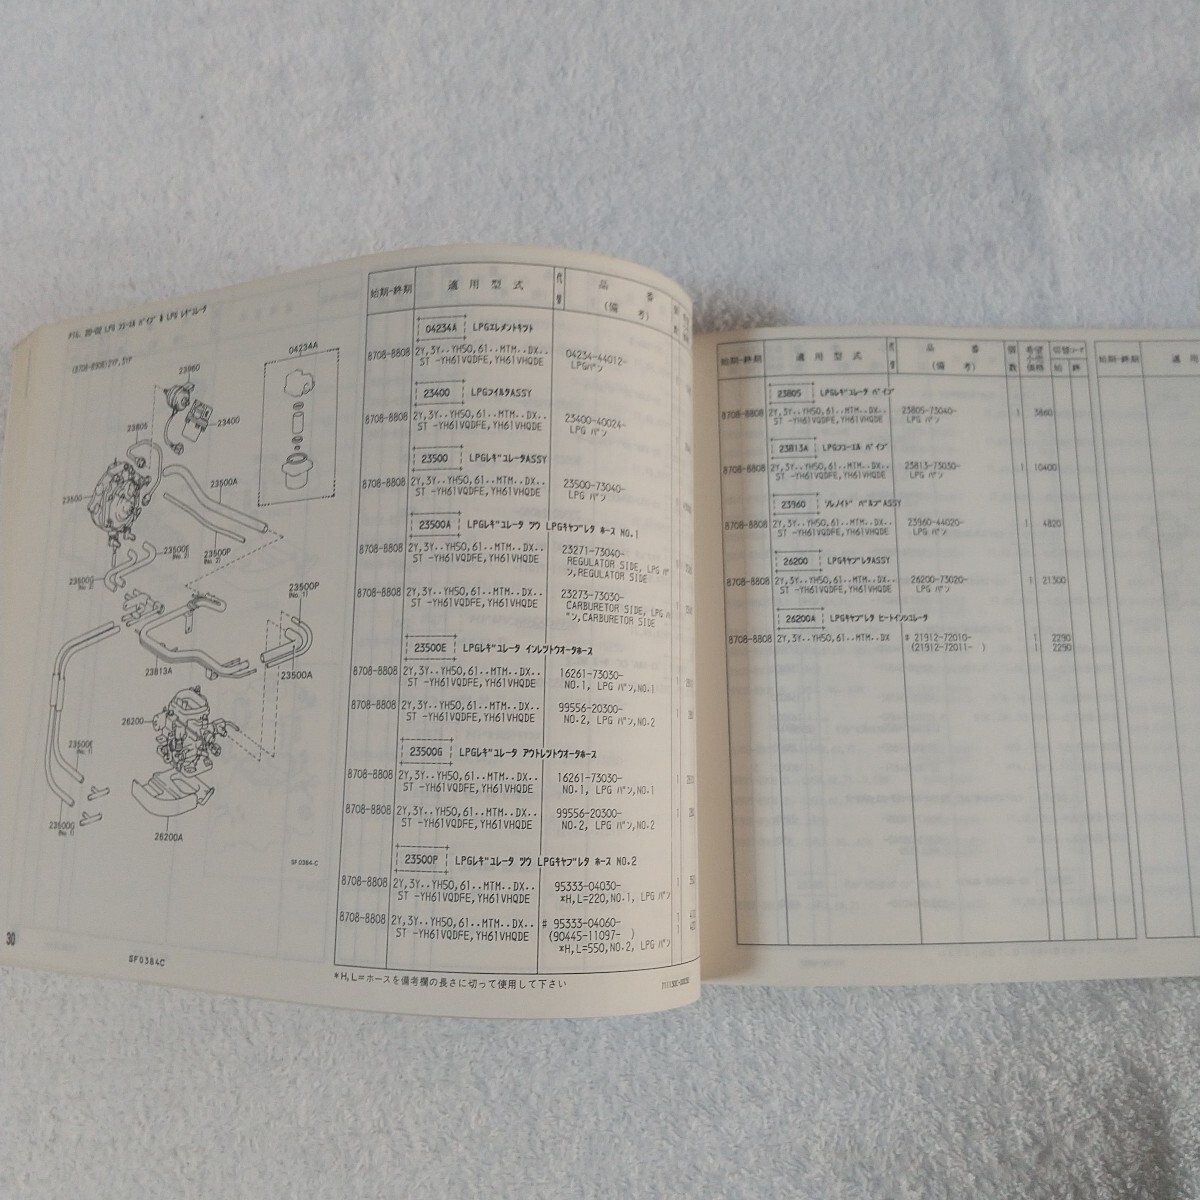 FIG. 20-02 LPG フューエル パイプ & LPG レギュレータ
(8708-8908)2YP,3YP
04234A
23960
23400
23805
23500
23500A
23500E
(No. 2)
23500P
(No. 2)
23500G
(No. 2)
23500P
(No. 1)
23813A
23500A
26200
23500E
(No. 1)
23500G
(No. 1)
26200A
SF0384-C
30
SF0384C
始期-終期 適用型式 代替 品番
(備考)
04234A LPGエレメントキット
8708-8808 2Y,3Y..YH50,61..MTM..DX.. 04234-44012-
ST -YH61VQDFE,YH61VHQDE LPGバン
23400 LPGフイルタASSY
8708-8808 2Y,3Y..YH50,61..MTM..DX.. 23400-40024-
ST -YH61VQDFE,YH61VHQDE LPG バン
23500 LPGレギュレータASSY
8708-8808 2Y,3Y..YH50,61..MTM..DX.. 23500-73040-
ST -YH61VQDFE,YH61VHQDE LPG バン
23500A LPGレギュレータ ツウ LPGキャブレタ ホース NO.1
8708-8808 2Y,3Y..YH50,61..MTM..DX.. 23271-73040-
ST -YH61VQDFE,YH61VHQDE REGULATOR SIDE, LPG バ
ン,REGULATOR SIDE
8708-8808 2Y,3Y..YH50,61..MTM..DX.. 23273-73030-
ST -YH61VQDFE,YH61VHQDE CARBURETOR SIDE, LPG
バン,CARBURETOR SIDE
23500E LPGレギュレータ インレットウオータホース
8708-8808 2Y,3Y..YH50,61..MTM..DX.. 16261-73030-
ST -YH61VQDFE,YH61VHQDE NO.1, LPG バン,NO.1
8708-8808 2Y,3Y..YH50,61..MTM..DX.. 99556-20300-
ST -YH61VQDFE,YH61VHQDE NO.2, LPG バン,NO.2
23500G LPGレギュレータ アウトレットウオータホース
8708-8808 2Y,3Y..YH50,61..MTM..DX.. 16261-73030-
ST -YH61VQDFE,YH61VHQDE NO.1, LPG バン,NO.1
8708-8808 2Y,3Y..YH50,61..MTM..DX.. 99556-20300-
ST -YH61VQDFE,YH61VHQDE NO.2, LPG バン,NO.2
23500P LPGレギュレータ ツウ LPGキャブレタ ホース NO.2
8708-8808 2Y,3Y..YH50,61..MTM..DX.. 95333-04030-
ST -YH61VQDFE,YH61VHQDE *H,L=220,NO.1, LPG バン
8708-8808 2Y,3Y..YH50,61..MTM..DX.. # 95333-04060-
ST -YH61VQDFE,YH61VHQDE (90445-11097- )
*H,L=550,NO.2, LPG バン
*H,L=ホースを備考欄の長さに切って使用して下さい
始期-終期 適用型式 代替 品番 個数 希望小売価格 切替コード
(備考) 始 終
23805 LPGレギュレータ パイプ
8708-8808 2Y,3Y..YH50,61..MTM..DX.. 23805-73040- 1 3860
ST -YH61VQDFE,YH61VHQDE LPG バン
23813A LPGフューエル パイプ
8708-8808 2Y,3Y..YH50,61..MTM..DX.. 23813-73030- 1 10400
ST -YH61VQDFE,YH61VHQDE LPG バン
23960 ソレノイド バルブASSY
8708-8808 2Y,3Y..YH50,61..MTM..DX.. 23960-44020- 1 4820
ST -YH61VQDFE,YH61VHQDE LPG バン
26200 LPGキャブレタASSY
8708-8808 2Y,3Y..YH50,61..MTM..DX.. 26200-73020- 1 21300
ST -YH61VQDFE,YH61VHQDE LPG バン
26200A LPGキャブレタ ヒートインシュレータ
8708-8808 2Y,3Y..YH50,61..MTM..DX # 21912-72010- 1 2290
(21912-72011- ) 1 2290
始期-終期 適用